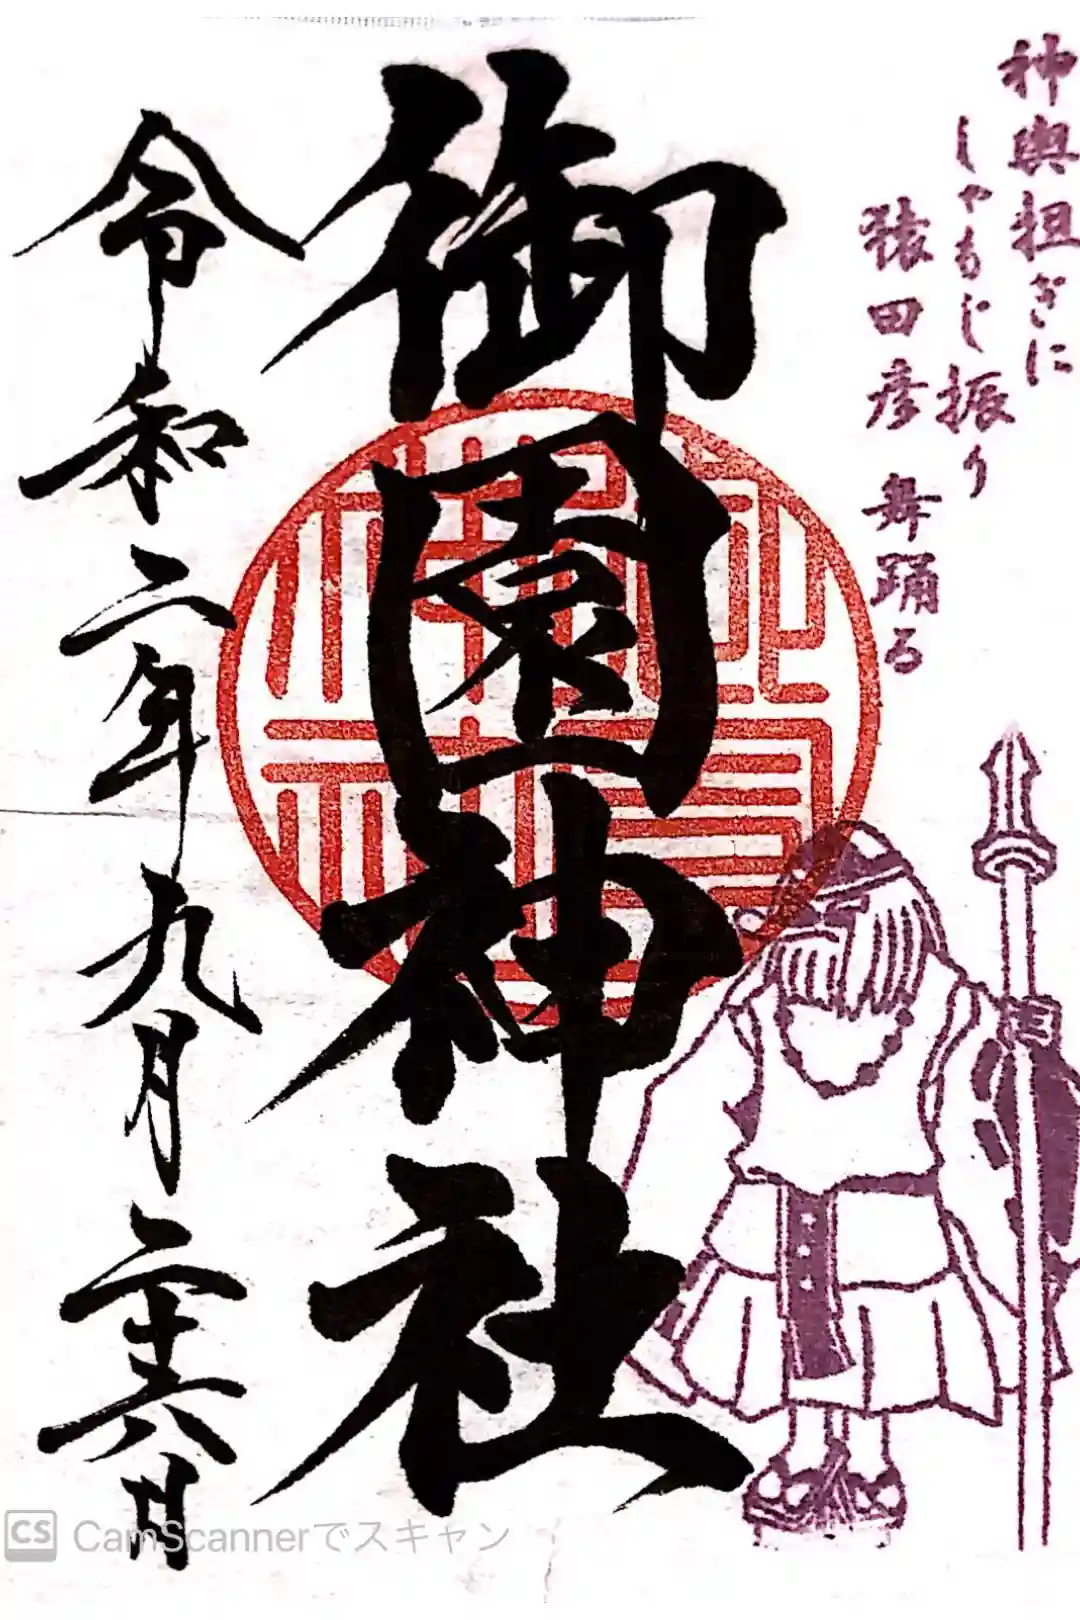 神輿担ぎに
しゃもじ振り
猿田彦 舞踊る
御園神社
令和二年九月二十六日
CS CamScannerでスキャン